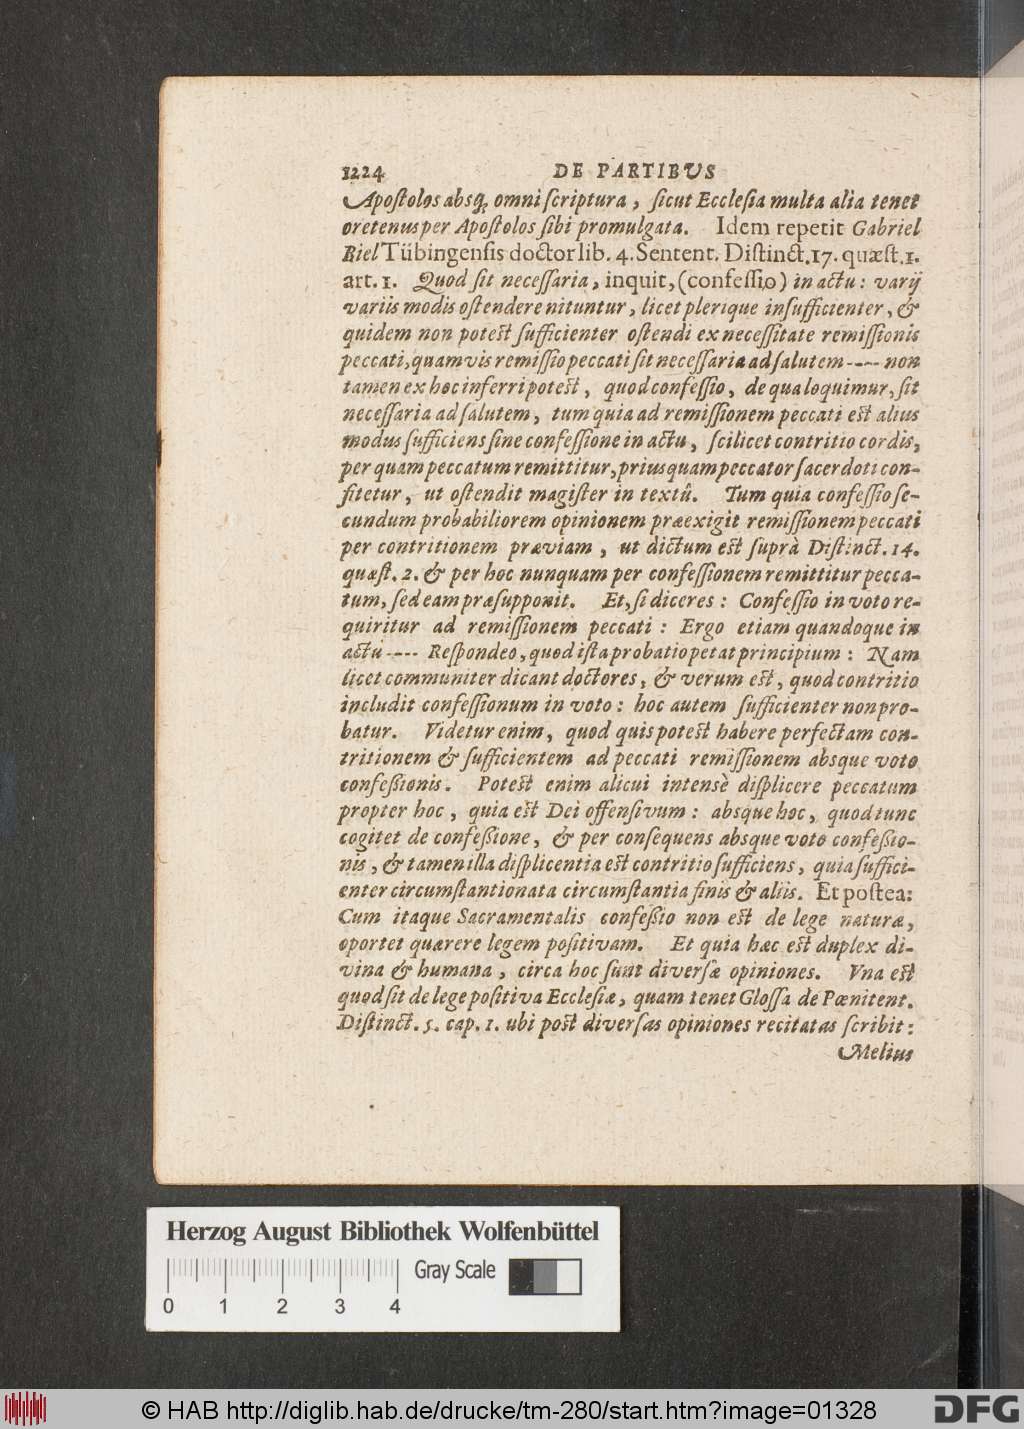 1224 DE PARTIBUS
Apoſtolos absq́; omni ſcriptura, ſicut Eccleſia multa alia tenet
oretenus per Apoſtolos ſibi promulgata. Idem repetit Gabriel
Biel Tübingenſis doctor lib. 4. Sentent. Diſtinct. 17. quæſt. 1.
art. 1. Quod ſit neceſſaria, inquit, (confeſſio) in actu: varij
variis modis oſtendere nituntur, licet plerique inſufficienter, &
quidem non poteſt ſufficienter oſtendi ex neceſſitate remiſſionis
peccati, quamvis remiſſio peccati ſit neceſſaria ad ſalutem ---- non
tamen ex hoc inferri poteſt, quod confeſſio, de qua loquimur, ſit
neceſſaria ad ſalutem, tum quia ad remiſſionem peccati eſt alius
modus ſufficiens ſine confeſſione in actu, ſcilicet contritio cordis,
per quam peccatum remittitur, priusquam peccator ſacerdoti con-
fitetur, ut oſtendit magiſter in textû. Tum quia confeſſio ſe-
cundum probabiliorem opinionem præexigit remiſſionem peccati
per contritionem præviam, ut dictum eſt ſuprà Diſtinct. 14.
quæſt. 2. & per hoc nunquam per confeſſionem remittitur pecca-
tum, ſed eam præſupponit. Et, ſi diceres: Confeſſio in voto re-
quiritur ad remiſſionem peccati: Ergo etiam quandoque in
actu ---- Reſpondeo, quod iſta probatio petat principium: Nam
licet communiter dicant doctores, & verum eſt, quod contritio
includit confeſſionum in voto: hoc autem ſufficienter non pro-
batur. Videtur enim, quod quis poteſt habere perfectam con-
tritionem & ſufficientem ad peccati remiſſionem absque voto
confeßionis. Poteſt enim alicui intensè diſplicere peccatum
propter hoc, quia eſt Dei offenſivum: absque hoc, quod tunc
cogitet de confeßione, & per conſequens absque voto confeßio-
nis, & tamen illa diſplicentia eſt contritio ſufficiens, quia ſuffici-
enter circumſtantionata circumſtantia finis & aliis. Et poſtea:
Cum itaque Sacramentalis confeßio non eſt de lege naturæ,
oportet quærere legem poſitivam. Et quia hæc eſt duplex di-
vina & humana, circa hoc ſunt diverſæ opiniones. Vna eſt
quod ſit de lege poſitiva Eccleſiæ, quam tenet Gloſſa de Pœnitent.
Diſtinct. 5. cap. 1. ubi poſt diverſas opiniones recitatas ſcribit:
Melius
Herzog August Bibliothek Wolfenbüttel
Gray Scale
0 1 2 3 4
© HAB http://diglib.hab.de/drucke/tm-280/start.htm?image=01328
DFG